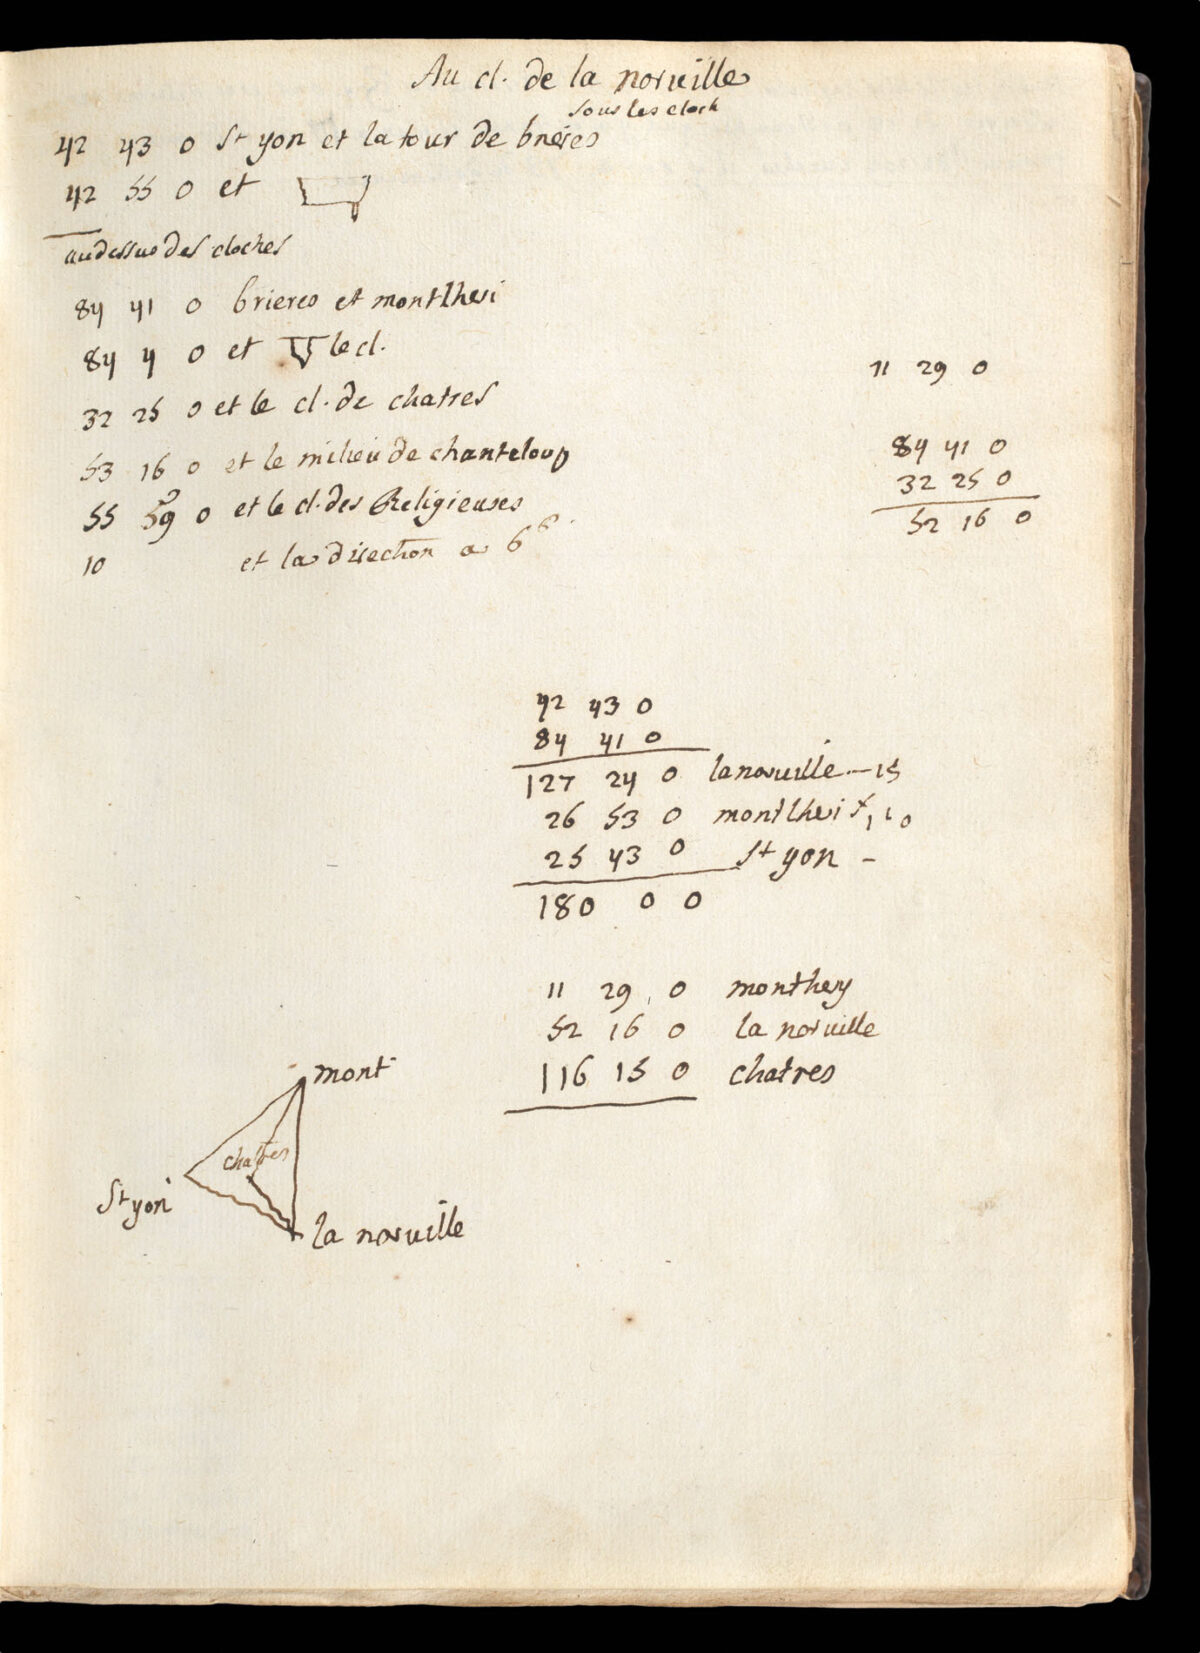 Au cl. de la norville
sous les cloch
42 43 0 St yon et la tour de brieres
42 55 0 et
audessus des cloches
84 41 0 brieres et montlheri
84 4 0 et le cl.
32 25 0 et le cl. de chatres
53 16 0 et le milieu de chanteloup
55 59 0 et le cl. des Religieuses
10 et la direction a 6
11 29 0
84 41 0
32 25 0
52 16 0
42 43 0
84 41 0
127 24 0 lanorville - 15
26 53 0 montlheri
25 43 0 St yon -
180 0 0
11 29 0 monthery
52 16 0 la norville
116 15 0 chatres
mont
chatres
St yon
la norville